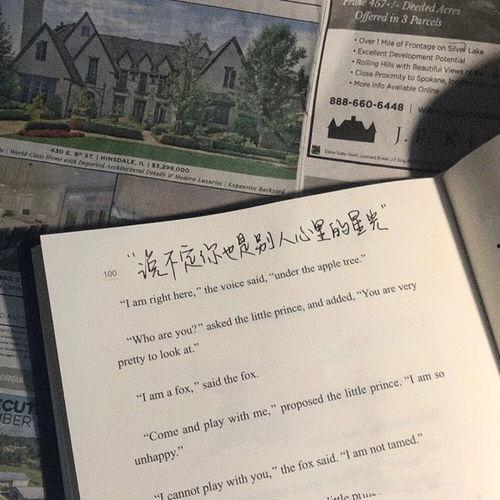 Prime 457+/- Deeded Acres
Offered in 3 Parcels
• Over 1 Mile of Frontage on Silver Lake
• Excellent Development Potential
• Rolling Hills with Beautiful Views of
• Close Proximity to Spokane,
• More Info Available Online
888-660-6448
430 E. 9th ST. | HINSDALE, IL | $3,299,000
World Class Home with Imported Architectural Details & Modern Luxuries | Expansive Backyard
"说不定你也是别人心里的星光"
100
“I am right here,” the voice said, “under the apple tree.”
“Who are you?” asked the little prince, and added, “You are very
pretty to look at.”
“I am a fox,” said the fox.
“Come and play with me,” proposed the little prince. “I am so
unhappy.”
“I cannot play with you,” the fox said. “I am not tamed.”
little prin